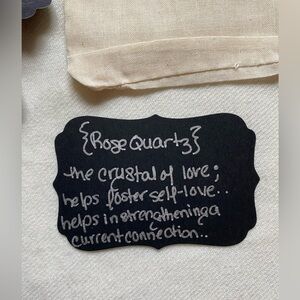 {Rose Quartz}
the crystal of love;
helps foster self-love..
helps in strengthening a
current connection..